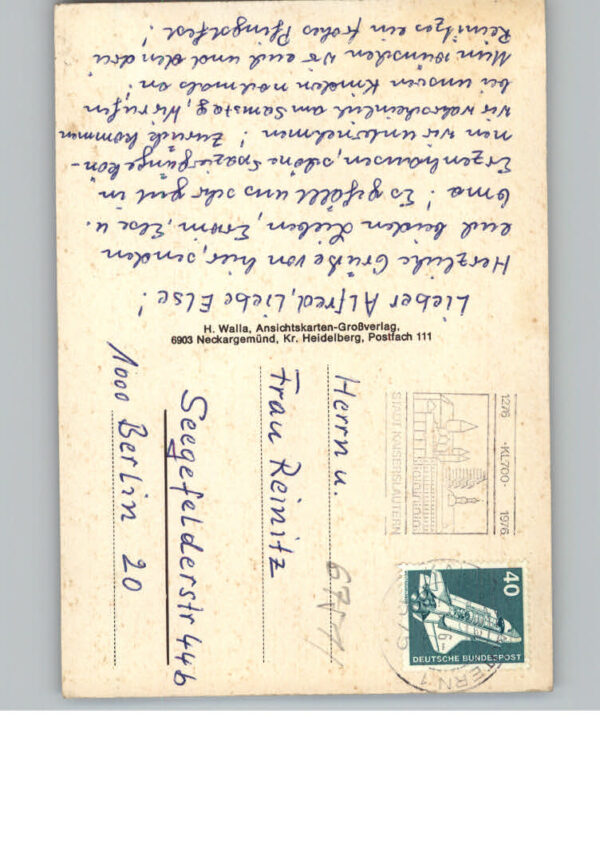 Lieber Alfred, Liebe Else!
Herzliche Grüße von hier, senden
euch beiden Lieben, Erwin, Else u.
Oma! Es gefällt uns sehr gut in
Erzenhausen, schöne Spaziergänge kön-
nen wir unternehmen! Zurück kommen
wir wahrscheinlich am Samstag, Wir rufen
bei unseren Kindern nochmals an!
Nun wünschen wir euch und den drei
Reinitzes ein frohes Pfingstfest!
H. Walla, Ansichtskarten-Großverlag,
6903 Neckargemünd, Kr. Heidelberg, Postfach 111
1276 -KL700- 1976
STADT KAISERSLAUTERN
40
DEUTSCHE BUNDESPOST
Herrn u.
Frau Reinitz
Seegefelderstr 44b
1000 Berlin 20